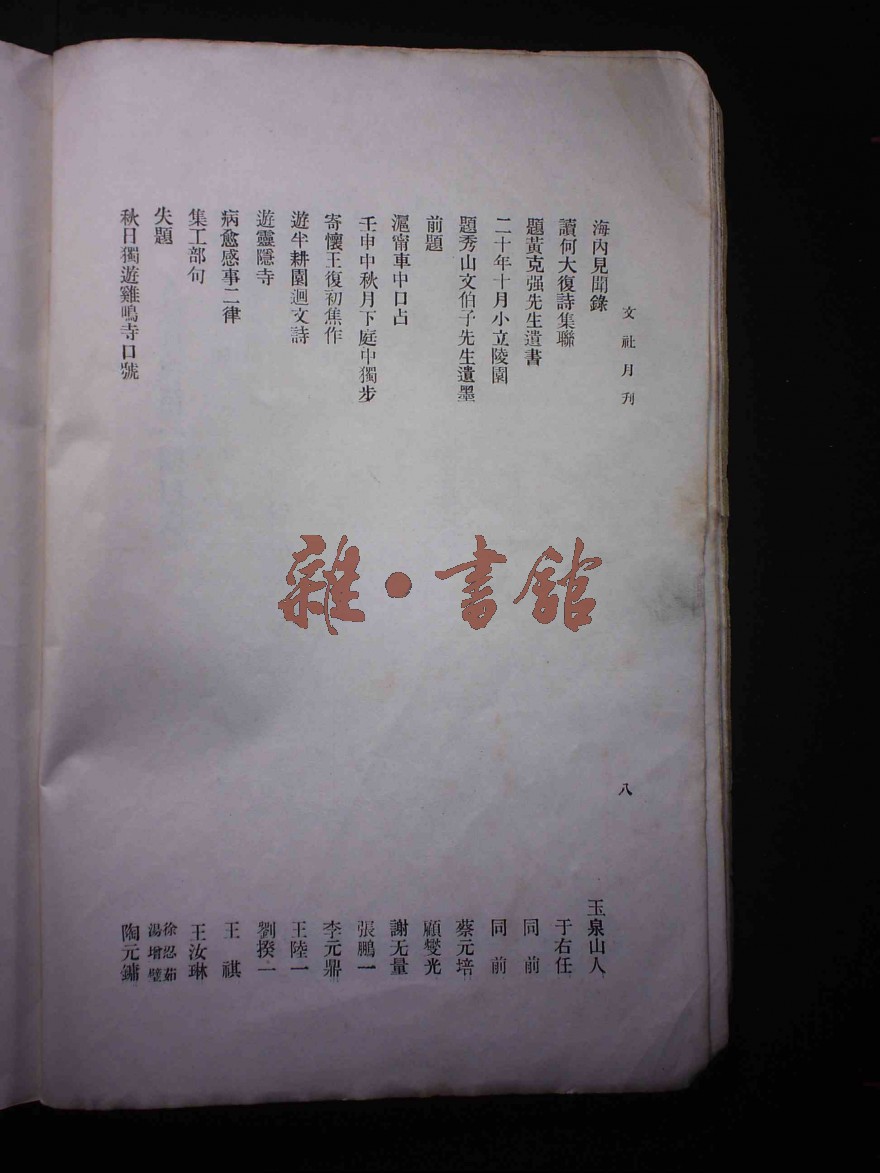 文社月刊
八
海內見聞錄 玉泉山人
讀何大復詩集聯 于右任
題黃克强先生遺書 同前
二十年十月小立陵園 同前
題秀山文伯子先生遺墨 蔡元培
前題 顧燮光
滬甯車中口占 謝无量
壬申中秋月下庭中獨步 張鵬一
寄懷王復初焦作 李元鼎
遊半耕園迴文詩 王陸一
遊靈隱寺 劉揆一
病愈感事二律 王祺
集工部句 王汝琳
失題 徐忍茹 湯增璧
秋日獨遊雞鳴寺口號 陶元鏞
雜·書館